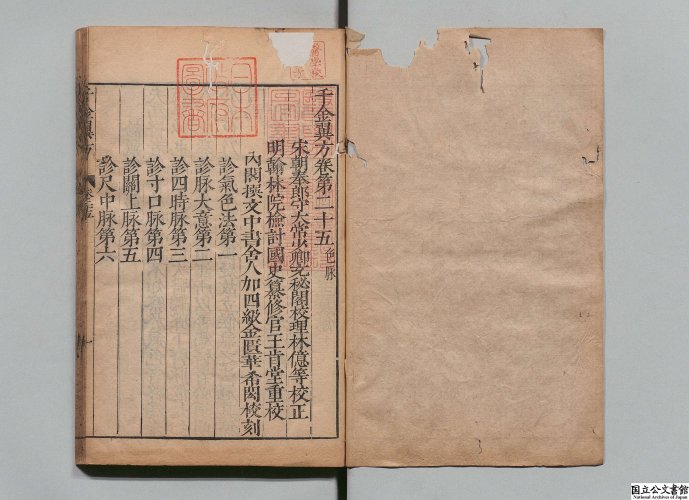 千金翼方卷第二十五 色脉
宋朝奉郎守太常少卿充秘閣校理林億等校正
明翰林院檢討國史纂修官王肯堂重校
內閣撰文中書舍人加四級金匱華希閎校刻
診氣色法第一
診脉大意第二
診四時脉第三
診寸口脉第四
診關上脉第五
診尺中脉第六
千金翼方
国立公文書館
National Archives of Japan